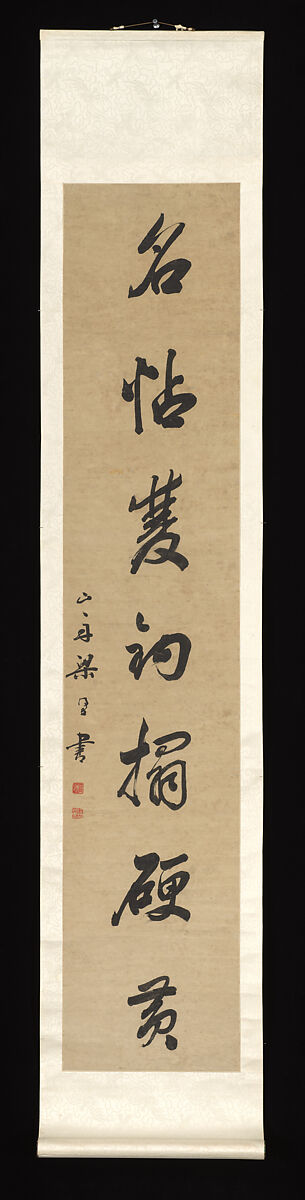 名帖雙鉤搨硬黃
山舟梁同書